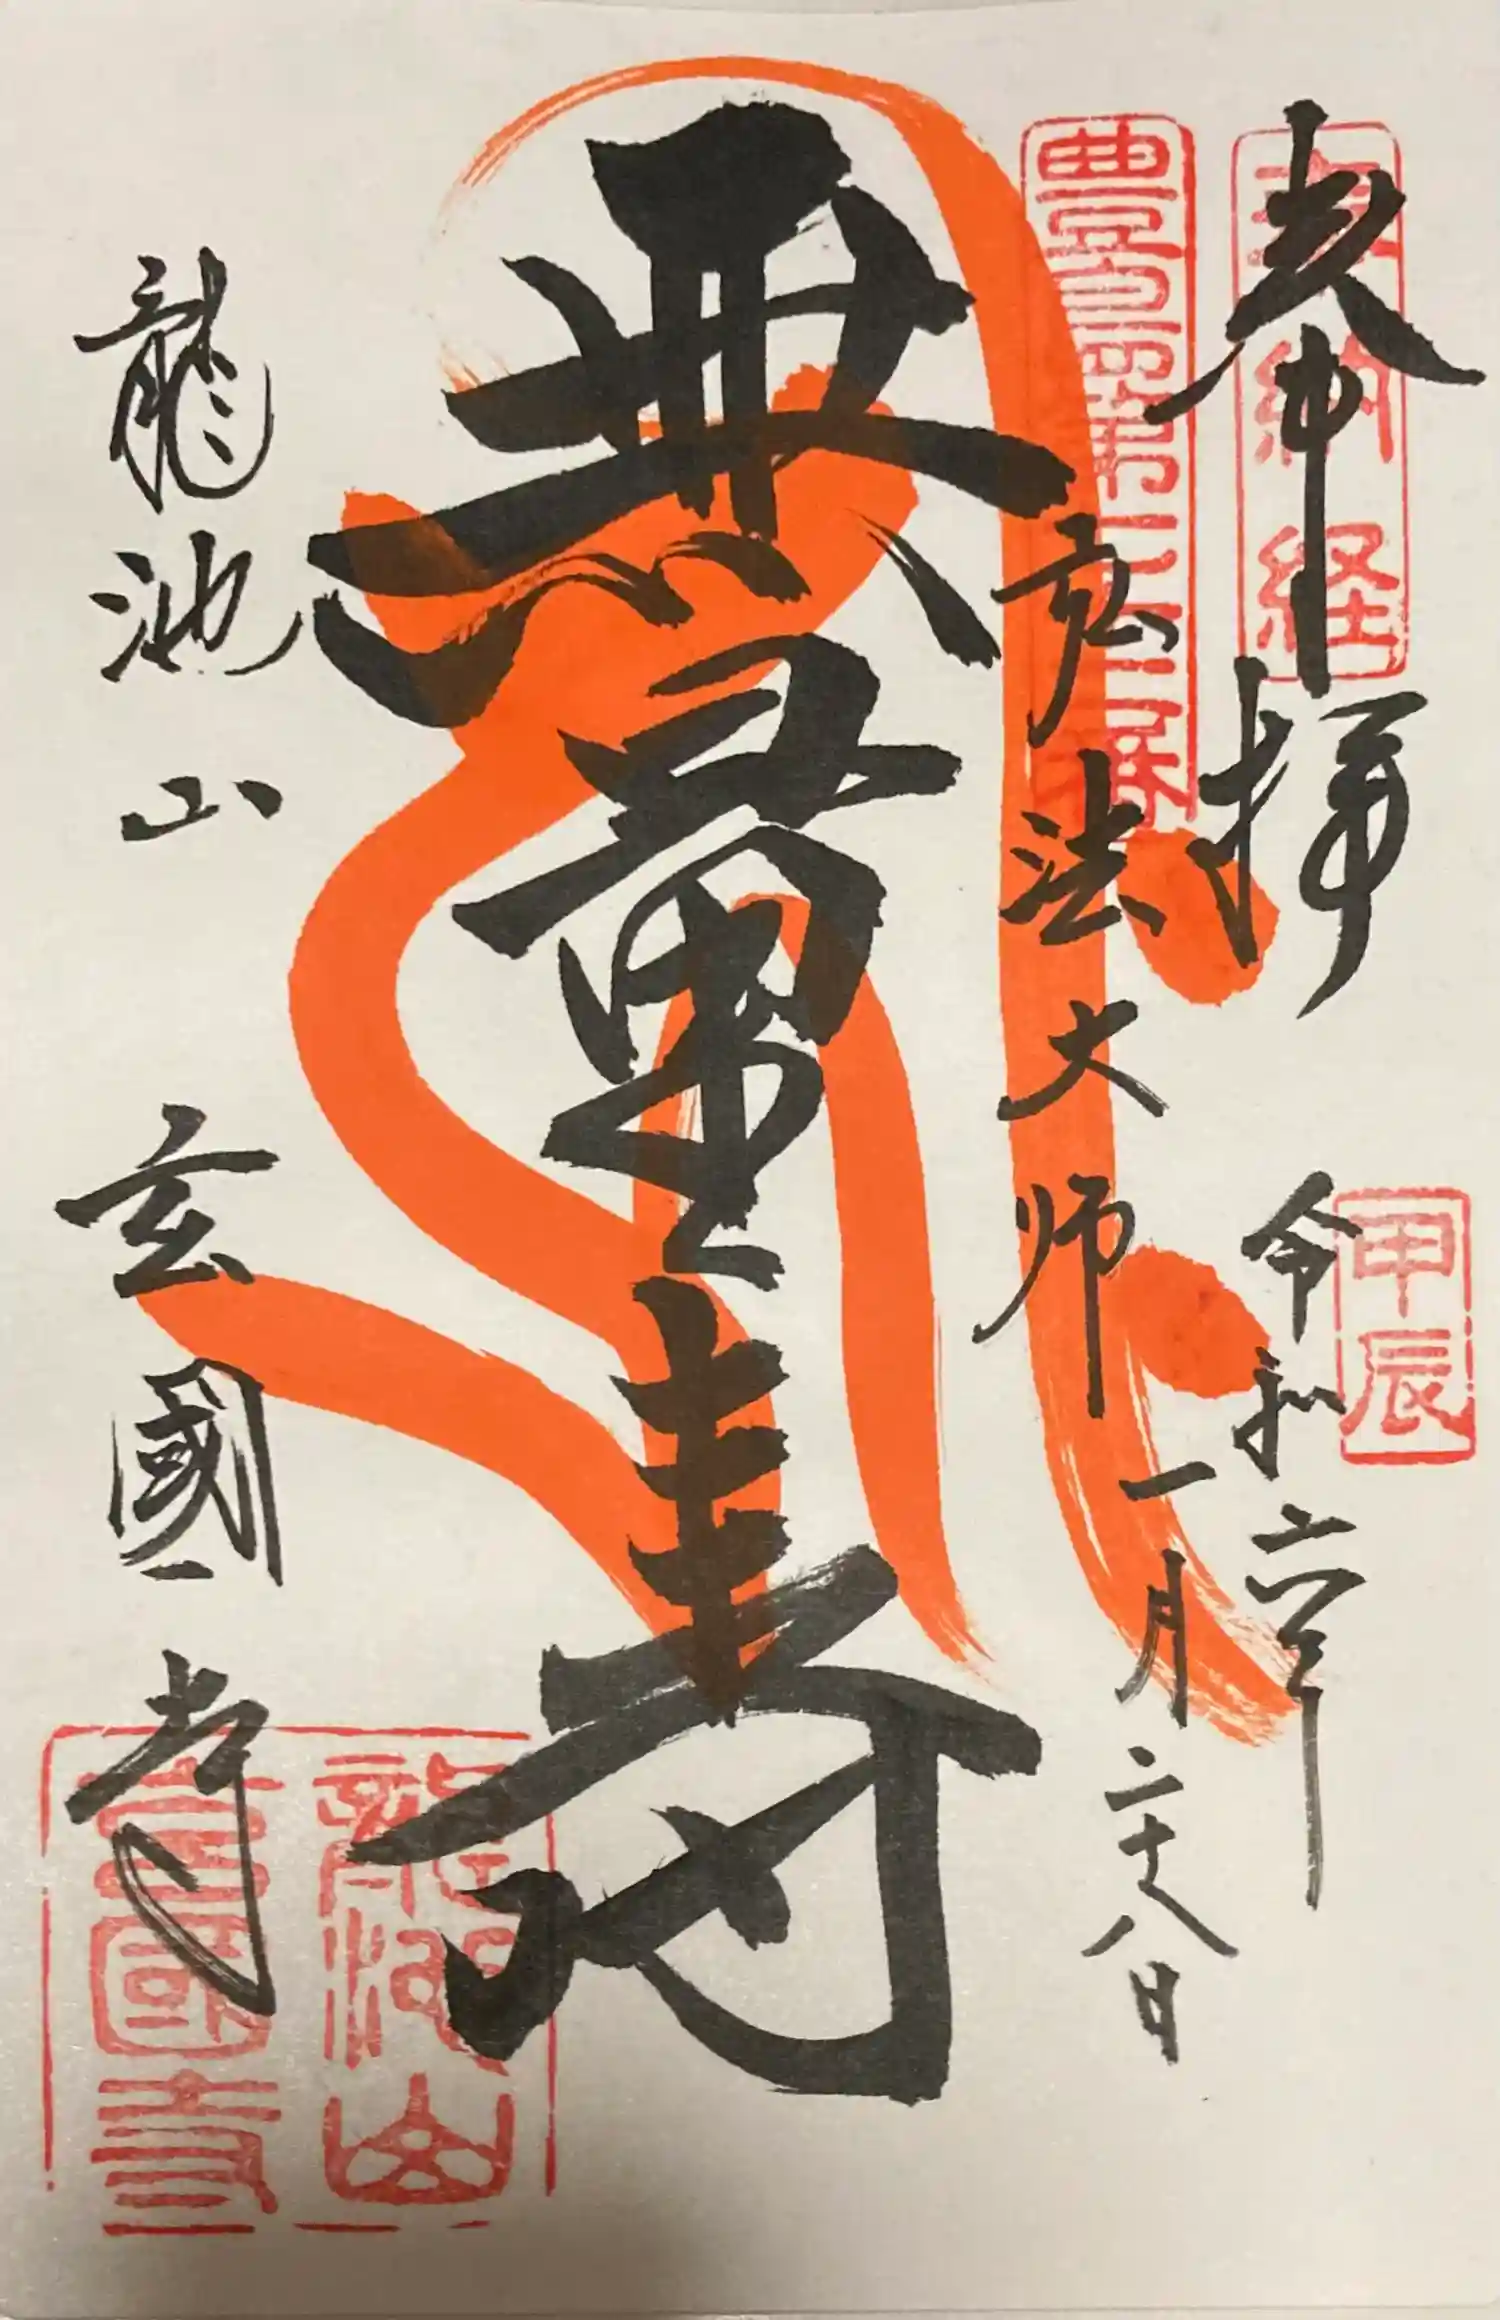 奉拝
奉納経
甲辰
令和六年
一月二十八日
弘法大師
無量寿
龍池山
玄國寺
龍池山
玄國寺